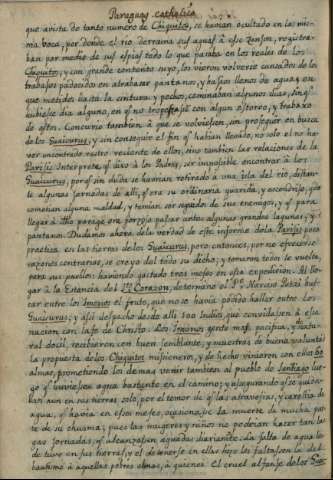 Paraguay catholica
que a vista de tanto numero de Chiquitos, se havian ocultado en las mis-
ma boca, por donde el rio derrama sus aguas à ese zenson, registra-
ban por medio de sus espias todo lo que passaba en los reales de los
Chiquitos; y con grande contento suyo, los vieron volverse cansados de los
trabajos padecidos en atravesar pantanos, y passos llenos de agua, en
que metidos hasta la cintura, y pechos, caminaban algunos dias, sin q
hubiesse dia alguno, en q no tropezasse con algun estorvo, y trabaxo
de estos. Concurrio tambien à que se volviessen, sin proseguir en busca
de los Guaicurus, y sin conseguir el fin q havian llevado, no solo el no ha-
ver encontrado rastro reciente de ellos, sino tambien las relaciones de la
Parisis Interprete, q dixo à los Padres, ser impossible encontrar à los
Guaicurus, porq sin duda se havrian retirado à una isla del rio, distan-
te algunas jornadas de alli, q era su ordinaria guarida, y escondrijo, quando
cometian alguna maldad, y temian ser seguidos de sus enemigos, y q para
llegar à dho parage era forzoso passar antes algunas grandes lagunas, y
pantanos. Dudamos ahora de la verdad de este informe de la Parisis poco
practica en las tierras de los Guaicurus, pero entonces, por no ofrecerse
razones contrarias, se creyo del todo su dicho; y tomaron todos la vuelta,
para sus pueblos: haviendo gastado tres meses en esta expedicion. Al lle-
gar à la Estancia del Sto Corazon, determinó el Pe Narciso Patzi bus-
car entre los Imonos el fruto, que no se havia podido hallar entre los
Guaicurus; y assi despachó desde alli 100 Indios que convidassen à esta
nacion con la fe de Christo. Los Imonos gente mas pacifica, y natu-
ral docil, recibieron con buen semblante, y muestras de buena voluntad
la propuesta de los Chiquitos missioneros, y de hecho vinieron con ellos 60
almas, prometiendo los demas venir tambien al pueblo de Santiago lue-
go q huviesse agua bastante en el camino; y assegurando q se queda-
ban aun en sus tierras, solo por el temor de q las atraviesas, y carestia de
agua, q havia en esos meses, ocasionasse la muerte de mucha par-
te de su chusma; pues las mugeres y niños no podrian hacer tan lar-
gas jornadas, q alcanzassen aguadas diariamte. La falta de agua les
detuvo en sus tierras; y el detenerse en ellas hizo les faltasse la del
bautismo à aquellas pobres almas, à quienes El cruel alfange de los Guai-